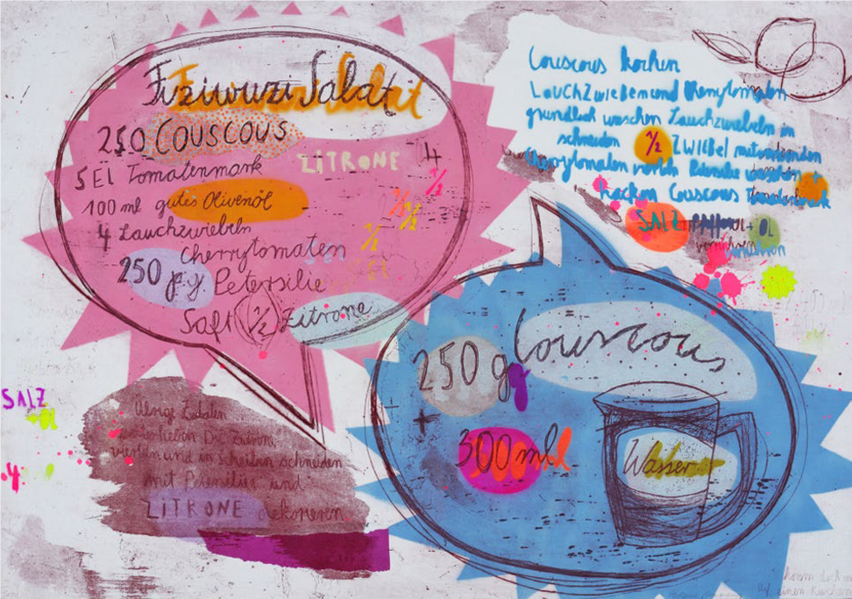 Fiziwuzi Salat
250 COUSCOUS
5 El Tomatenmark
ZITRONE 4
1/2
100 ml gutes Olivenöl
4 Lauchzwiebeln
1/2
Cherrytomaten
250 g Petersilie
Saft 1/2 Zitrone
Couscous kochen
LauchZwiebeln und Cherrytomaten
gründlich waschen Lauchzwiebeln in
schneiden 1/2 ZWIEBEL
hacken Couscous
SALZ + ÖL
250 g Couscous
+
300 ml
Wasser
SALZ
4
Übrige Zutaten
vierteln und in scheiben schneiden
mit Petersilie und
ZITRONE dekorieren